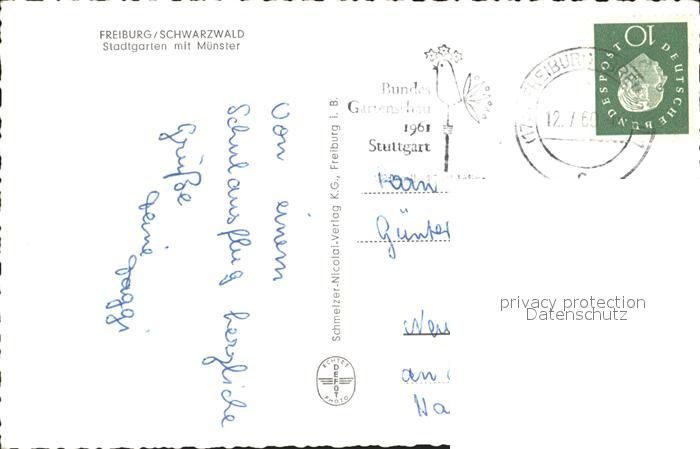 FREIBURG/SCHWARZWALD
Stadtgarten mit Münster
Von einem
Schulausflug herzliche
Grüße
Deine Jaggi
Schmelzer-Nicolai-Verlag K.G., Freiburg i. B.
ECHTES
DEFOT
PHOTO
Bundes
Gartenschau
1961
Stuttgart
12.7.60
10
DEUTSCHE BUNDESPOST
Günter
an
privacy protection
Datenschutz